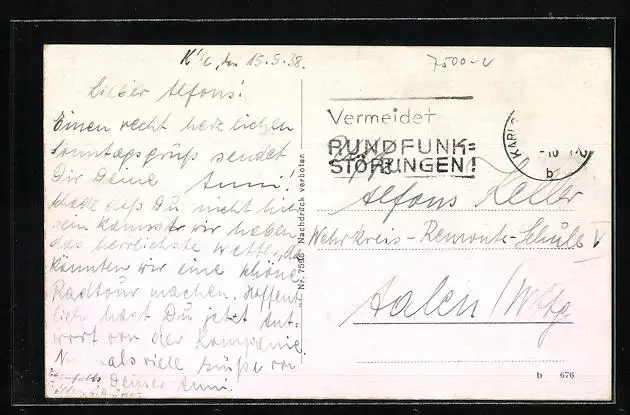 K'he, den 15.5.38.
Lieber Alfons!
Einen recht herzlichen
Sonntagsgruß sendet
Dir Deine Anni!
Schade daß Du nicht hier
sein kannst wir haben
das herrlichste Wetter, da
könnten wir eine schöne
Radtour machen. Hoffent
lich hast Du jetzt Ant-
wort von der Kompanie.
als viele Grüße von
Deiner Anni.
Nr. 7596 Nachdruck verboten
7500-V
Vermeidet
RUNDFUNK=
STÖRUNGEN!
KARL
-10
b
Alfons Keller
Wehrkreis-Remonte-Schule V
Aalen/Wttbg
b 676